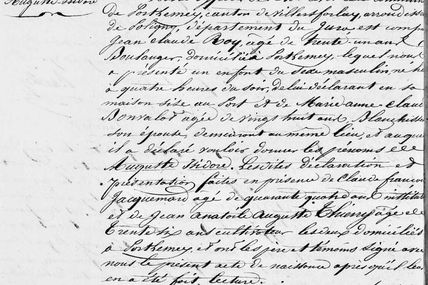 Auguste Isidore
de Port Lesney, canton de Villersfarlay, arrondisse
de Poligny, département du Jura est comp
Jean Claude Roy, agé de trente un ans
Boulanger, domicilié à Port Lesney, lequel nous
a présenté un enfant du sexe masculin né h
à quatre heures du soir, de lui déclarant en sa
maison sise au Port et de Marie anne Clau
Bonvalot agée de vingt huit ans Blanchisse
son épouse, demeurant au même lieu, et auque
il a déclaré vouloir donner les prénoms de
Auguste Isidore. Lesdites déclaration et
présentation faites en présence de Claude franco
Jacquemard agé de quarante quatre ans institute
et de Jean Anatole Auguste Thierry agé de
trente six ans cultivateur les deux domiciliés
à Port Lesney, et ont les père et témoins signé avec
nous le présent acte de naissance après qu'il leu
en a été fait lecture.